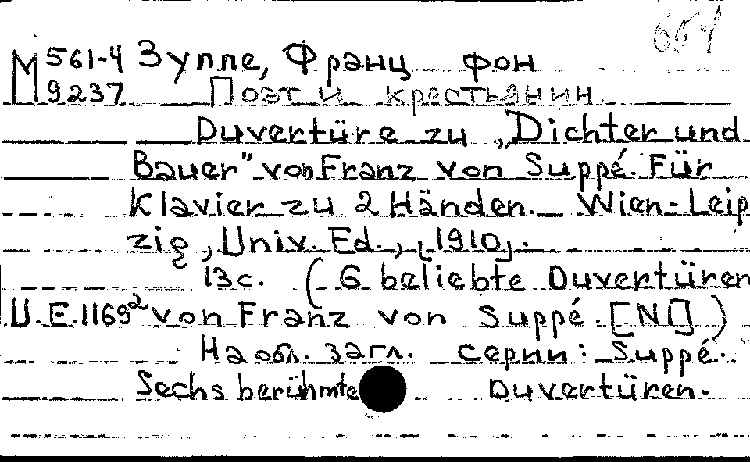 М 561-4 Зуппе, Франц фон
9237 Поэт и крестьянин
Ouvertüre zu „Dichter und
Bauer" von Franz von Suppé. Für
Klavier zu 2 Händen. Wien-Leip
zig, Univ. Ed., [1910].
13с. (6 beliebte Ouvertüren
U.E. 1169² von Franz von Suppé. [N1] )
На обл. загл. серии: Suppé.
Sechs berühmte Ouvertüren.